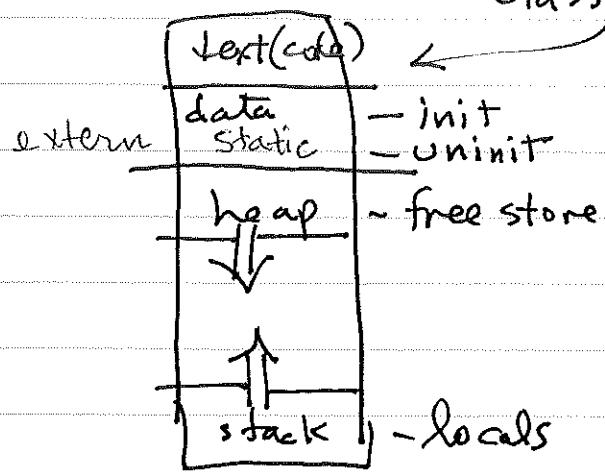 class
text(code)
data - init
extern static - uninit
heap ~ free store
stack - locals